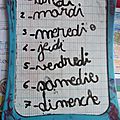 lundi
2-mardi
3-mercredi
4-jeudi
5-vendredi
6-samedie
7-dimenche